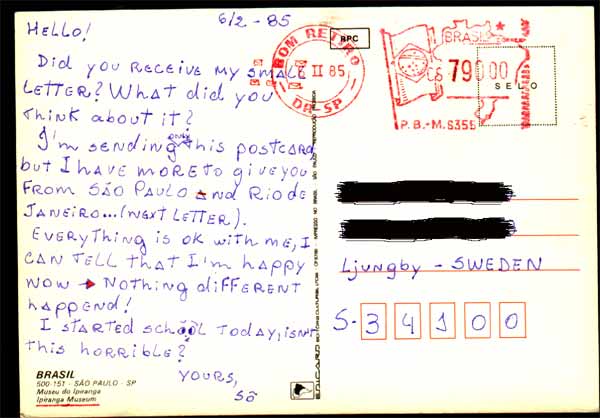 6/2-85
HELLO!
DID YOU RECEIVE MY SMALL
LETTER? WHAT DID YOU
THINK ABOUT IT?
I'M SENDING ONLY THIS POSTCARD
but I HAVE MORE TO GIVE YOU
FROM SÃO PAULO AND RIO DE
JANEIRO...(NEXT LETTER).
EVERYTHING IS OK WITH ME, I
CAN TELL THAT I'M HAPPY
NOW → NOTHING DIFFERENT
HAPPEND!
I STARTED SCHOOL TODAY, ISN'T
THIS HORRIBLE?
YOURS,
Sô
BRASIL
500-151 - SÃO PAULO - SP
Museu do Ipiranga
Ipiranga Museum
RPC
BOM RETIRO
II 85
DR-SP
BRASIL
CORREIO
CR$ 790.00
P.B.-M.6355
SELO
Ljungby - SWEDEN
S-34100